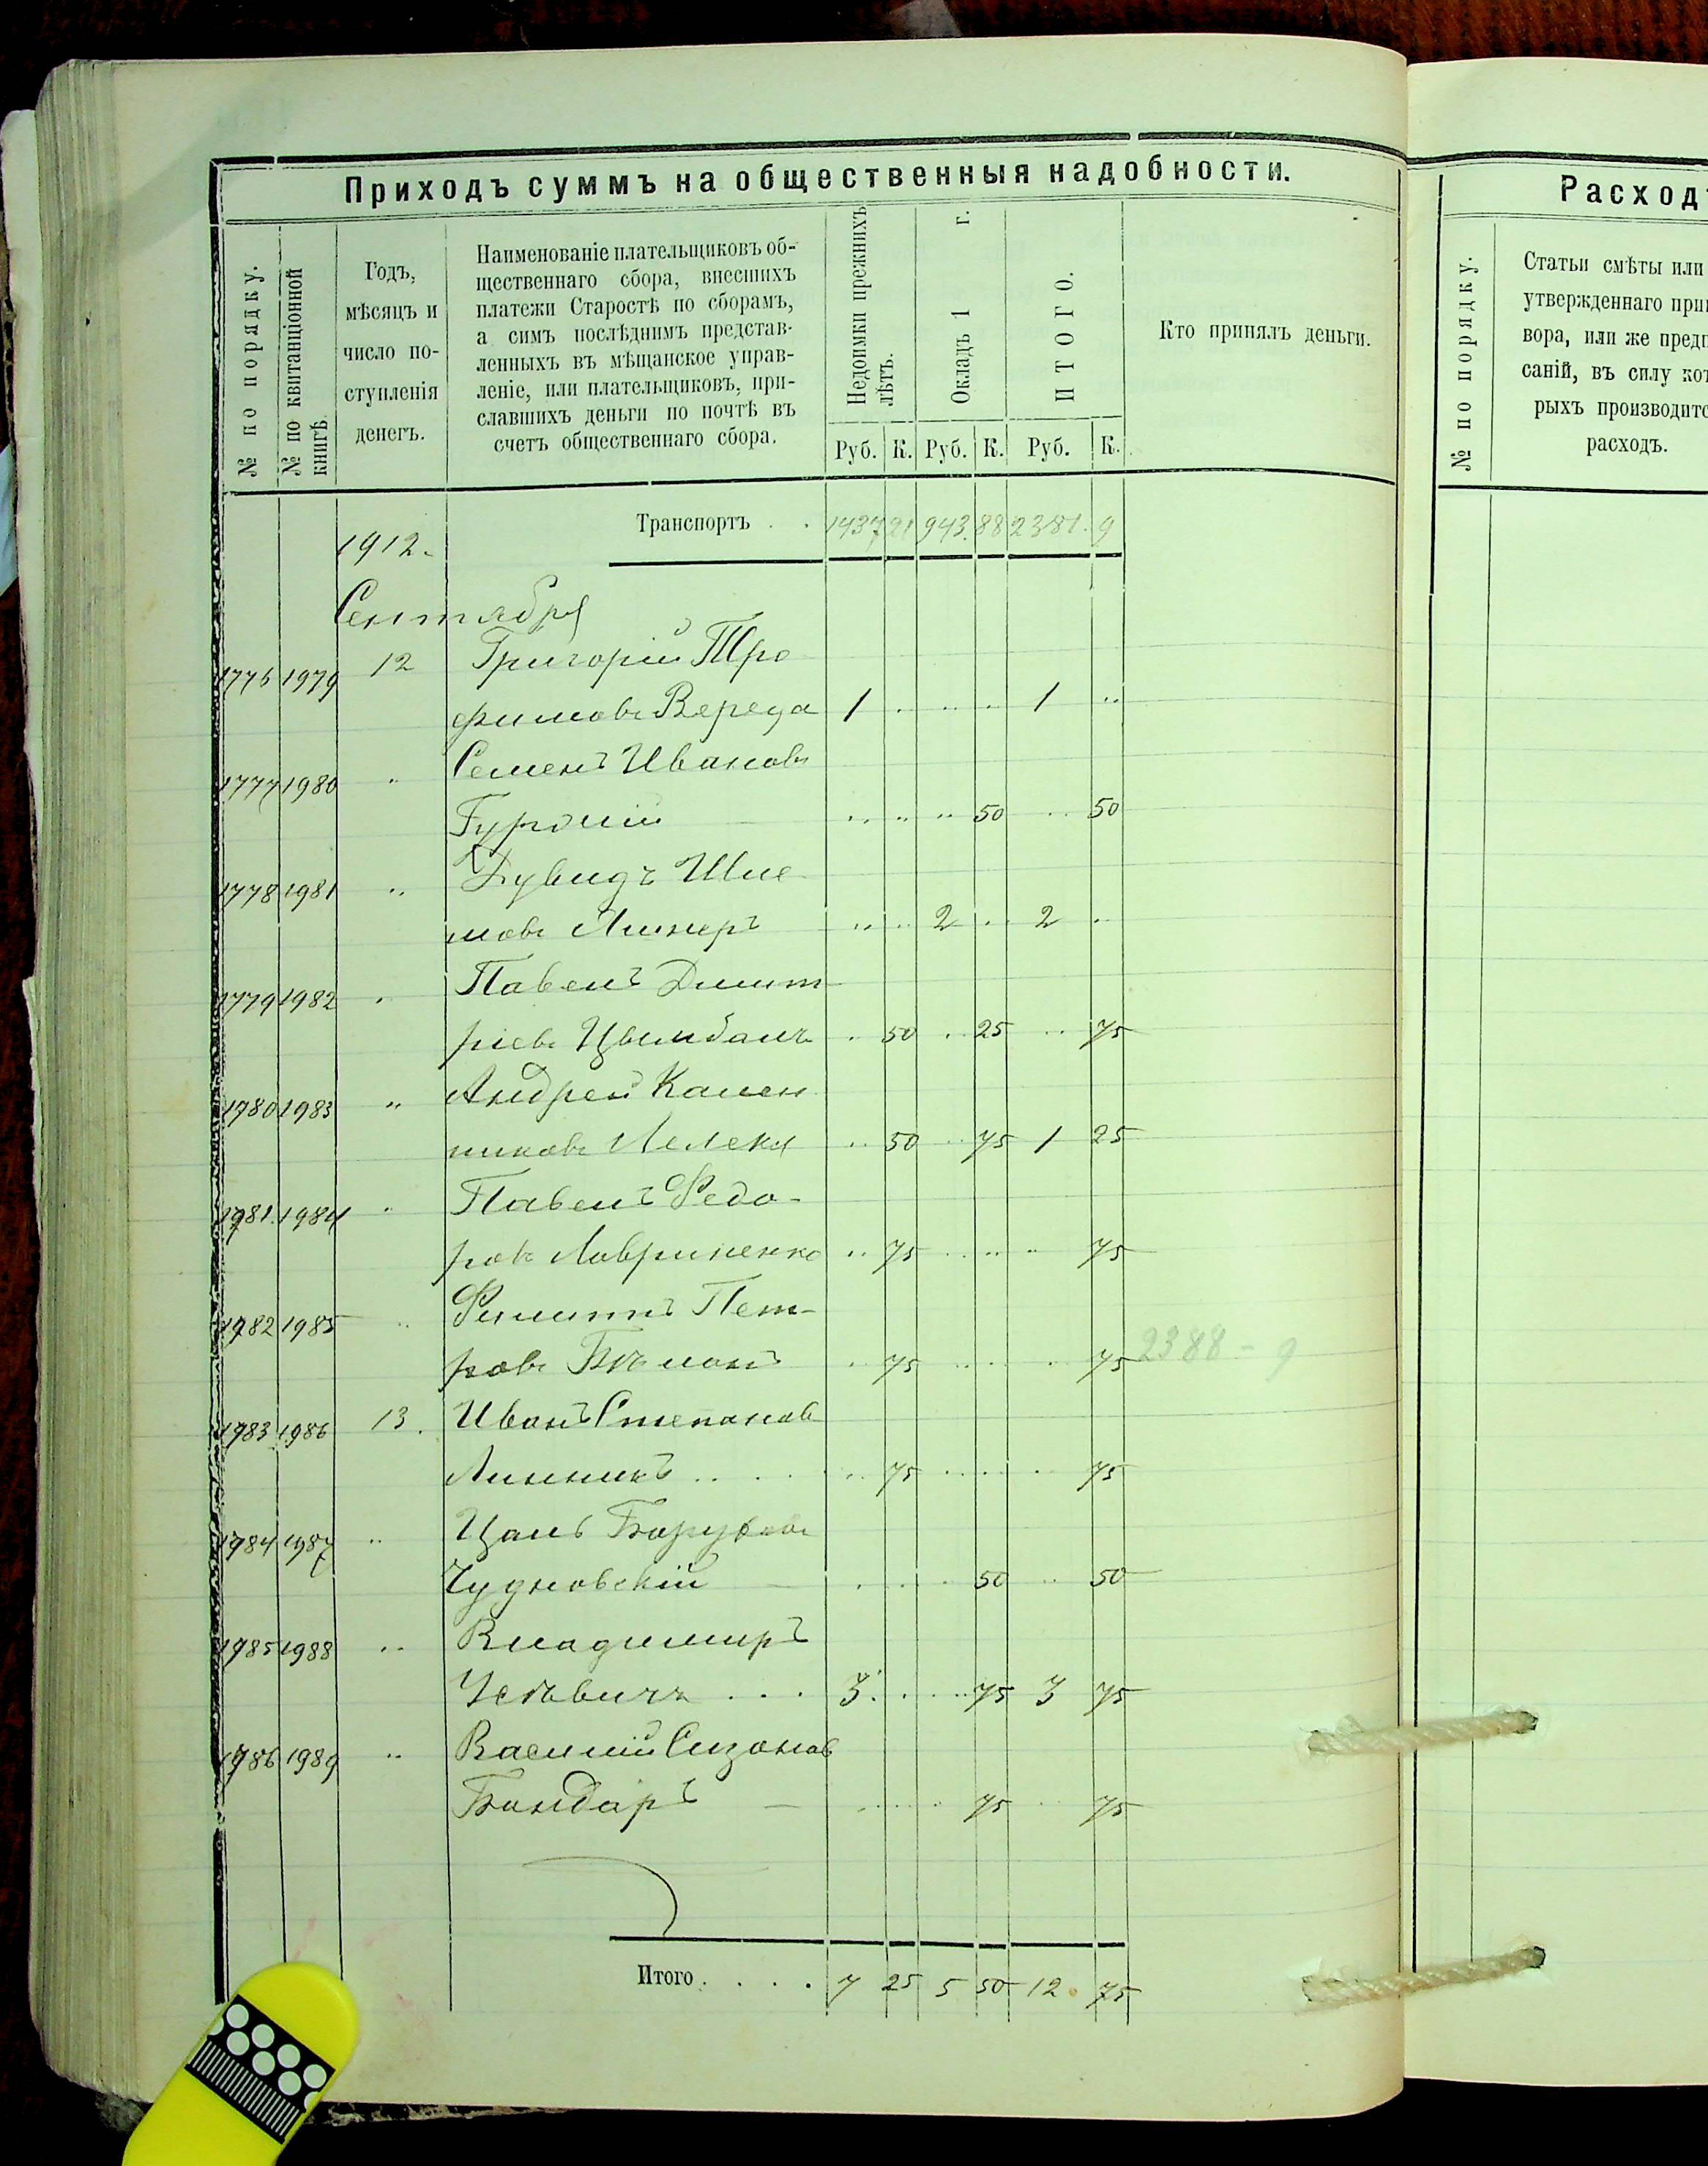 Приходъ суммъ на общественныя надобности.
№ по порядку.
№ по квитанціонной книгѣ
Годъ,
мѣсяцъ и
число по-
ступленія
денегъ.
Наименованіе плательщиковъ об-
щественнаго сбора, внесшихъ
платежи Старостѣ по сборамъ,
а симъ послѣднимъ представ-
ленныхъ въ мѣщанское управ-
леніе, или плательщиковъ, при-
славшихъ деньги по почтѣ въ
счетъ общественнаго сбора.
Недоимки прежнихъ
лѣтъ.
Окладъ 1 г.
ИТОГО.
Кто принялъ деньги.
Руб. К. Руб. К. Руб. К.
Транспортъ . . 1437 21 943. 88 2381. 9
1912.
Сентября
1776 1979 12 Григорій Тро
фимовъ Вереда 1 . .. . 1 ..
1777 1980 " Семенъ Ивановъ
.. .. .. 50 .. 50
1778 1981 ..
мовъ .. .. 2 .. 2 ..
1779 1982 . Павелъ Дмит
ріевъ Цымбалъ .. 50 .. 25 .. 75
1780 1983 " Андрей
.. 50 .. 75 1 25
1781. 1984 " Павелъ Федо-
ровъ Лавриненко .. 75 .. .. .. 75
1782 1985 .. Филиппъ Пет-
ровъ . 75 .. . . 75 2388 - 9
1783 1986 13. Иванъ Степановъ
Линникъ .. .. 75 .. .. .. 75
1784 1987 ..
Чудновскій — . . . 50 .. 50
1785 1988 .. Владиміръ
... 3. . .. 75 3 75
1786 1989 .. Василій Сизоновъ
Бондарь — .. .. . 75 .. 75
Итого . . . . 7 25 5 50 12. 75
Расходъ
№ по порядку.
Статьи смѣты или
утвержденнаго при
вора, или же предп
саній, въ силу кот
рыхъ производитс
расходъ.